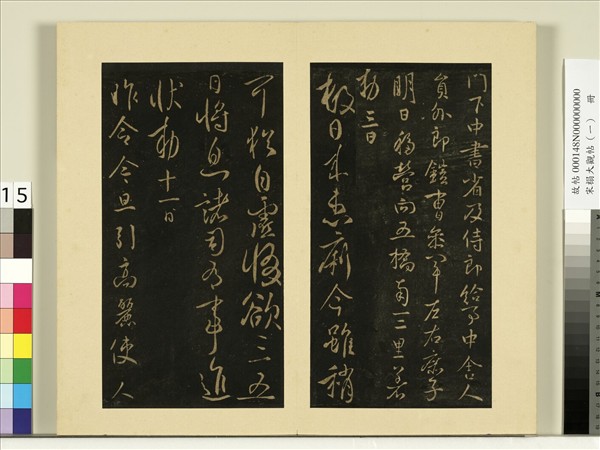 門下中書省及侍郎給事中舍人
員外郎鎧曹參軍左右庶子
明日移營向五橋南三里着
勅三日
數日來患痢今雖稍
可猶自虛惙欲三五
日將息諸司有事進
狀勅十一日
昨令今旦引高麗使人
故帖 000148N000000000
宋榻大觀帖(一) 冊
15